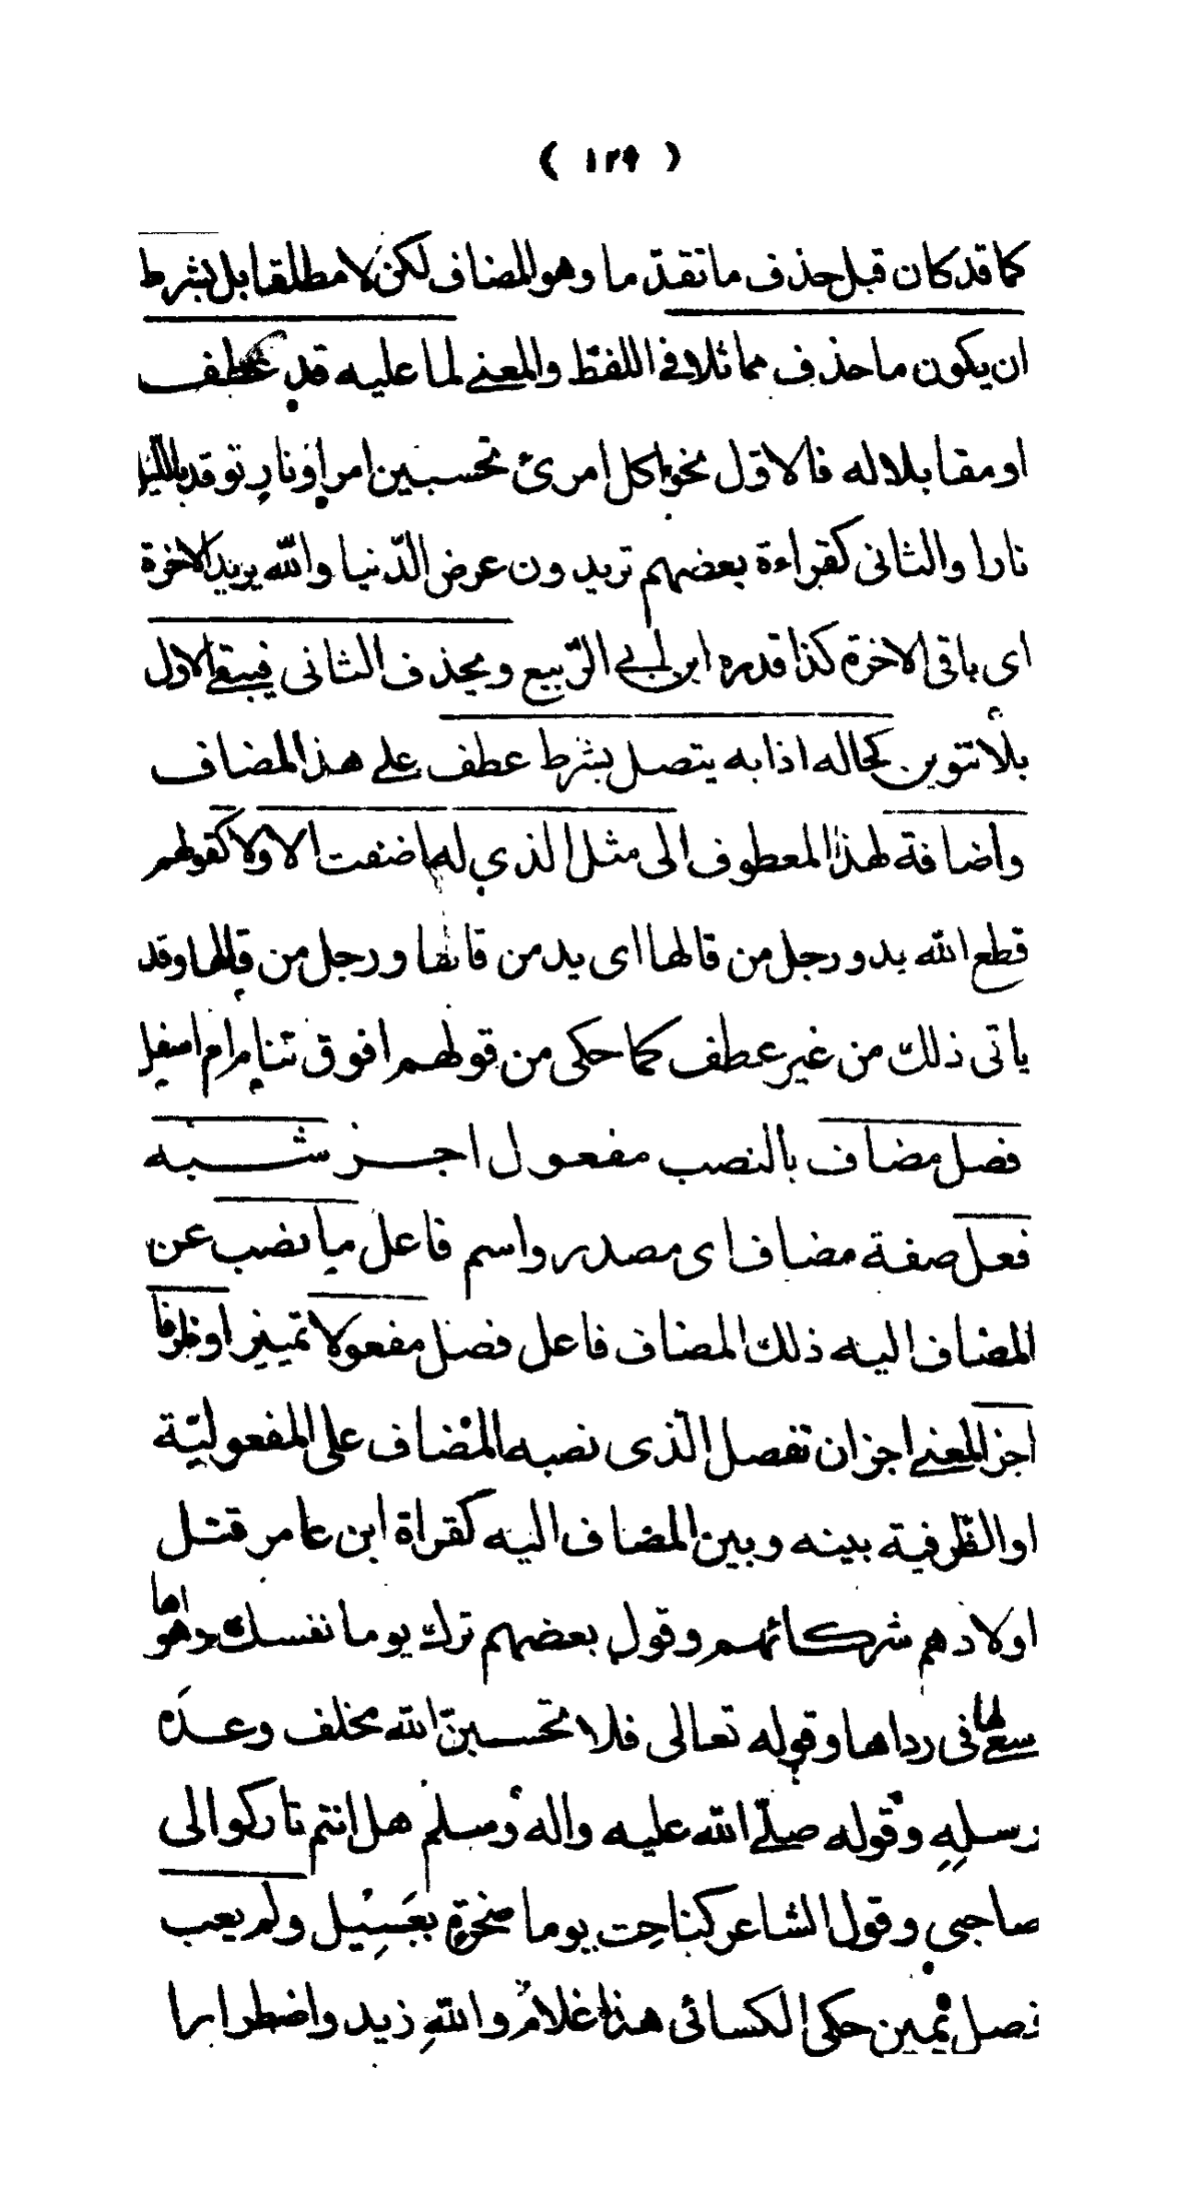 ( ١٢٩ )
كما قد كان قبل حذف ما تقدّ ما وهو المضاف لكن لا مطلقا بل بشرط
ان يكون ما حذف مماثلا في اللفظ والمعنى لما عليه قد عطف
او مقابلا له فالاوّل نحو اكل امرئ تحسبين امرا ونارٍ توقد بالليل
نارا والثانى كقراءة بعضهم تريدون عرض الدّنيا والله يريد الاخرة
اى باقى الاخرة كذا قدره ابن ابي الرّبيع ويحذف الثانى فيبقى الاول
بلا تنوين كحاله اذا به يتصل بشرط عطف على هذا المضاف
واضافة لهذا المعطوف الى مثل الذي له اضفت الاولا كقولهم
قطع الله يد ورجل من قالها اى يد من قالها ورجل من قالها وقد
ياتى ذلك من غير عطف كما حكى من قولهم افوق تنام ام اسفل
فصل مضاف بالنصب مفعول اجز شبه
فعل صفة مضاف اى مصدر واسم فاعل ما نصب عن
المضاف اليه ذلك المضاف فاعل فصل مفعولا تمييز او ظرفا
اجز المعنى اجز ان تفصل الّذى نصبه المضاف على المفعوليّة
او الظّرفية بينه وبين المضاف اليه كقراة ابن عامر قتل
اولادهم شركائهم وقول بعضهم ترك يوما نفسك وهواها
سعى لها فى رداها وقوله تعالى فلا تحسبنّ الله مخلف وعدَه
رسلِهِ وقوله صلّى الله عليه واله وسلم هل انتم تاركوا لى
صاحبى وقول الشاعر كناحِت يوما صخرةٍ بعَسِيْل ولم يعب
فصل يمين حكى الكسائى هذا غلامُ واللهِ زيد واضطرارا